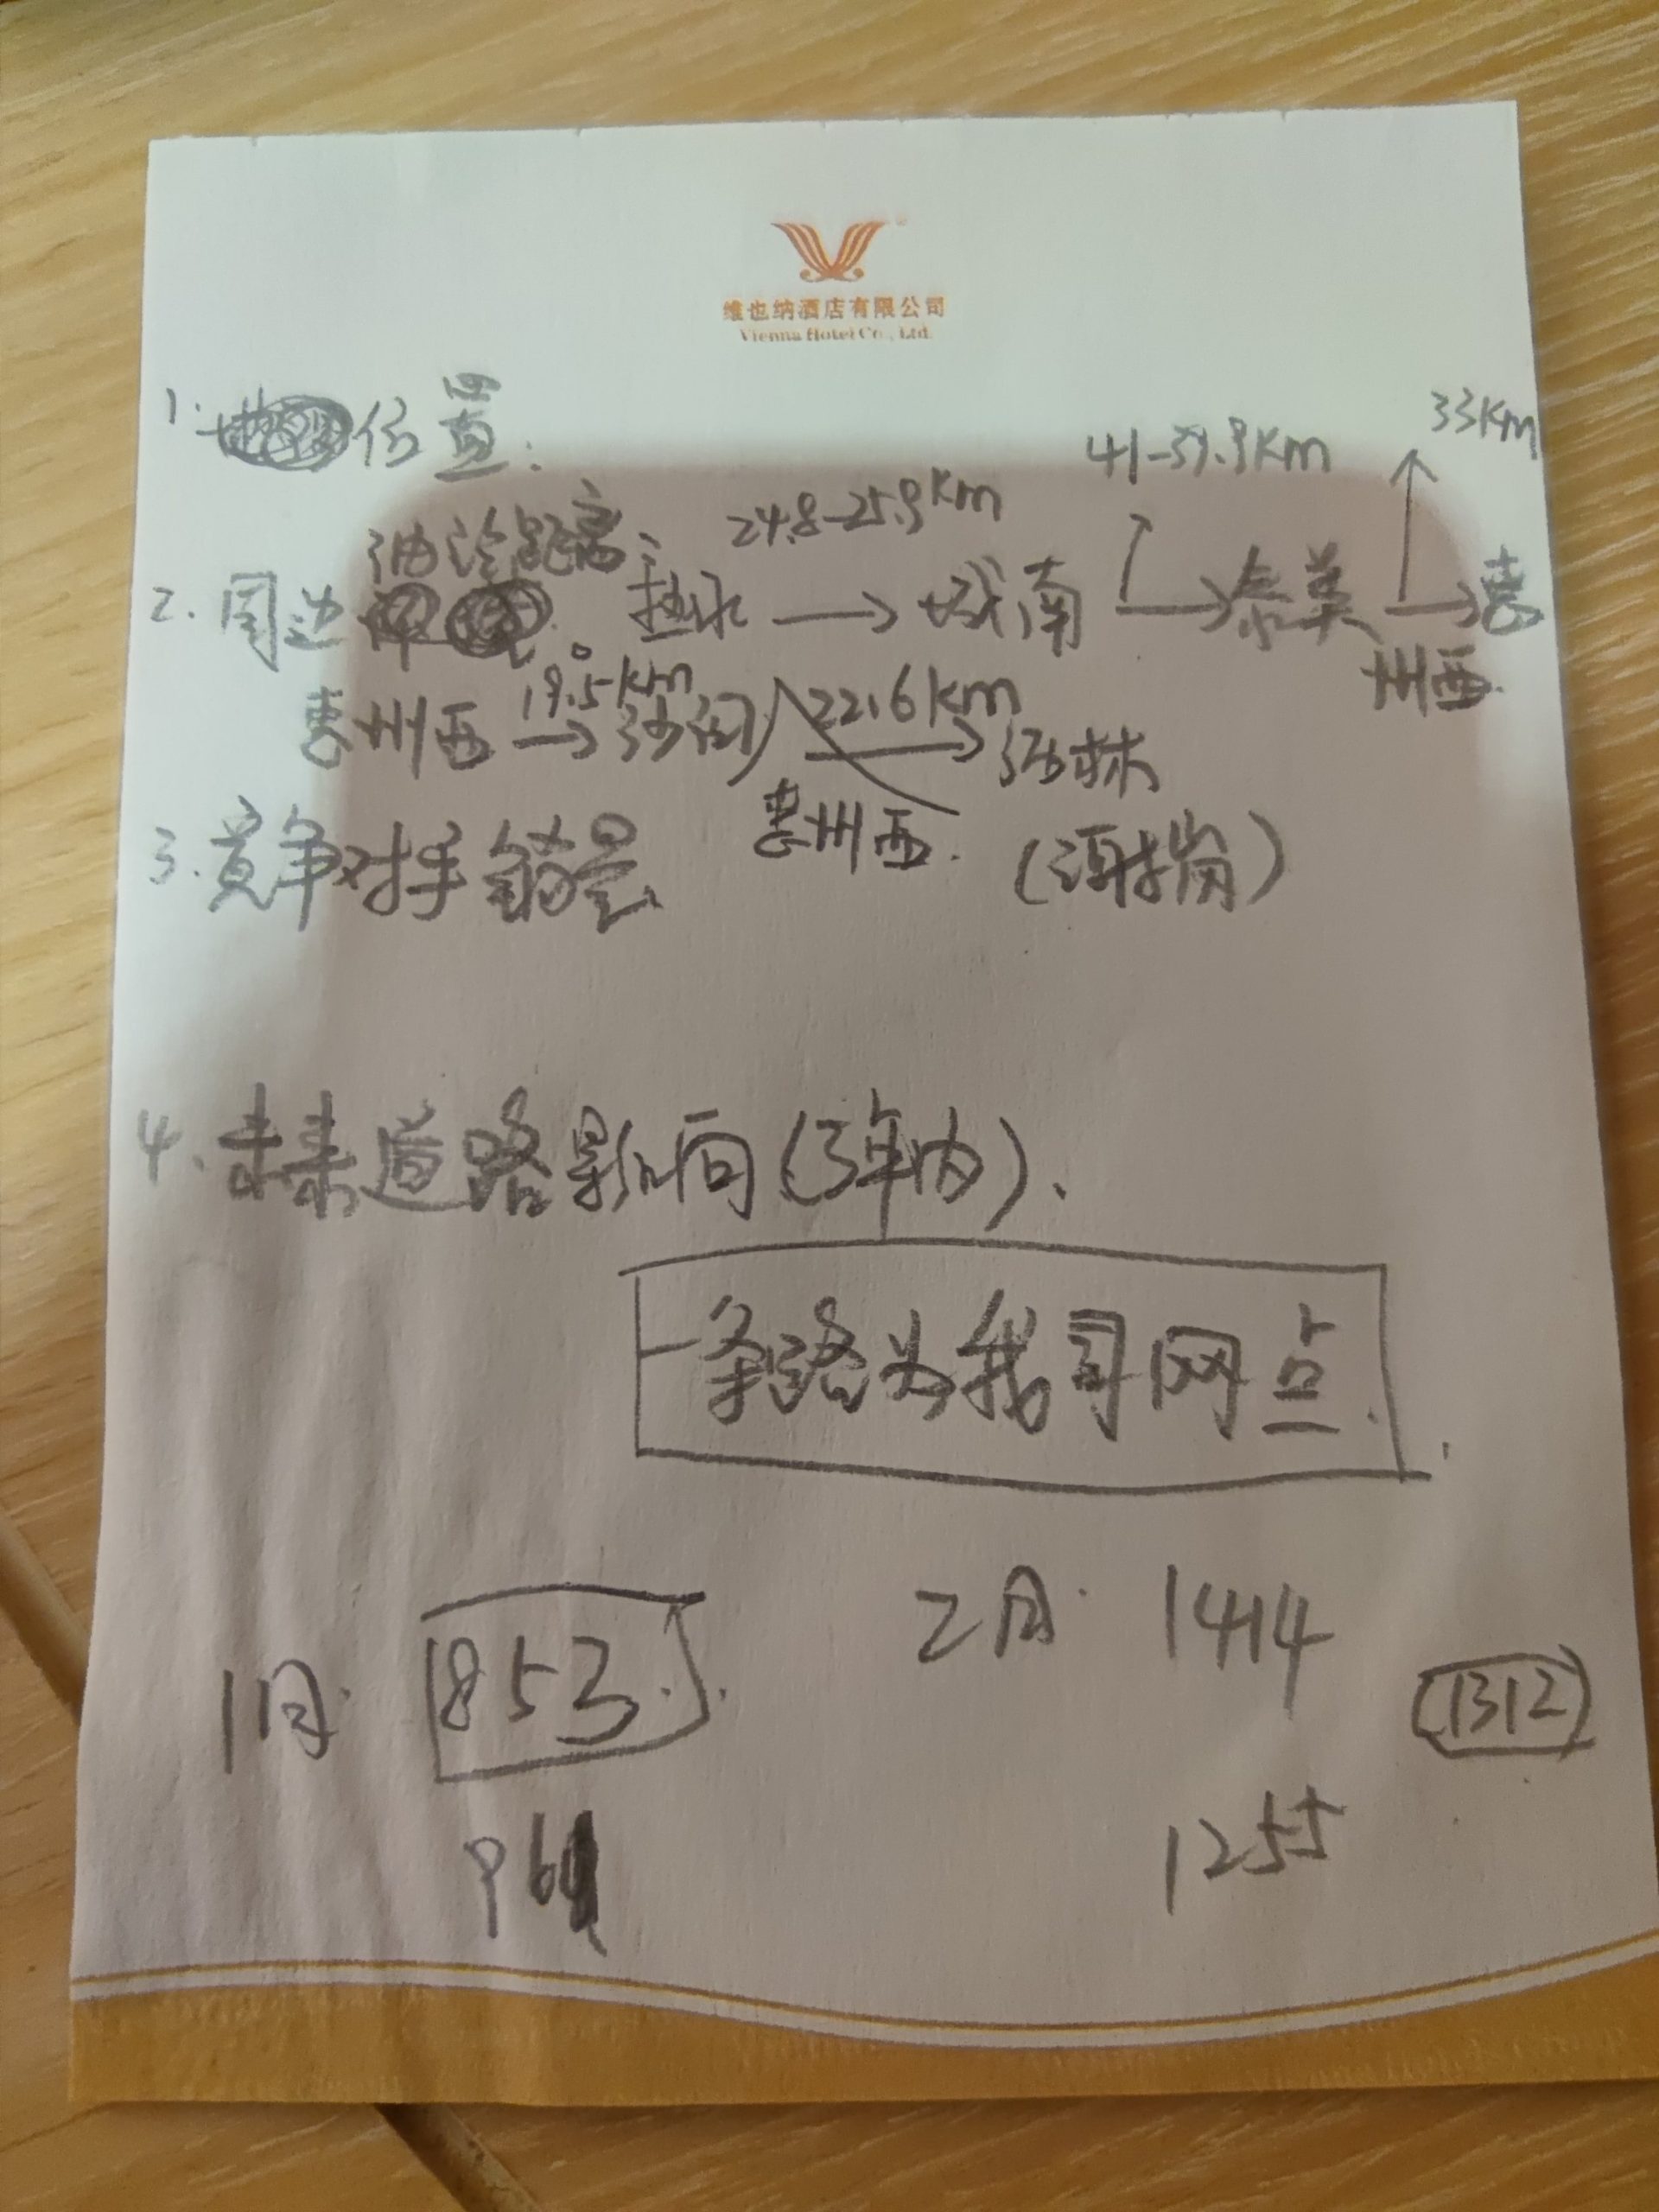 维也纳酒店有限公司
Vienna Hotel Co., Ltd.
1. 位置:
33Km
41-39.9Km
油站距离: 24.8-25.9Km
2. 周边 热水 → 城南 → 泰美 → 惠州西
19.5Km 22.6Km
惠州西 → 沙河 → 沥林
惠州西.
3. 竞争对手销量
4. 未来道路影响(3年内).
一条路为我司网点.
1月. 853 2月. 1414
(1312)
96 1255